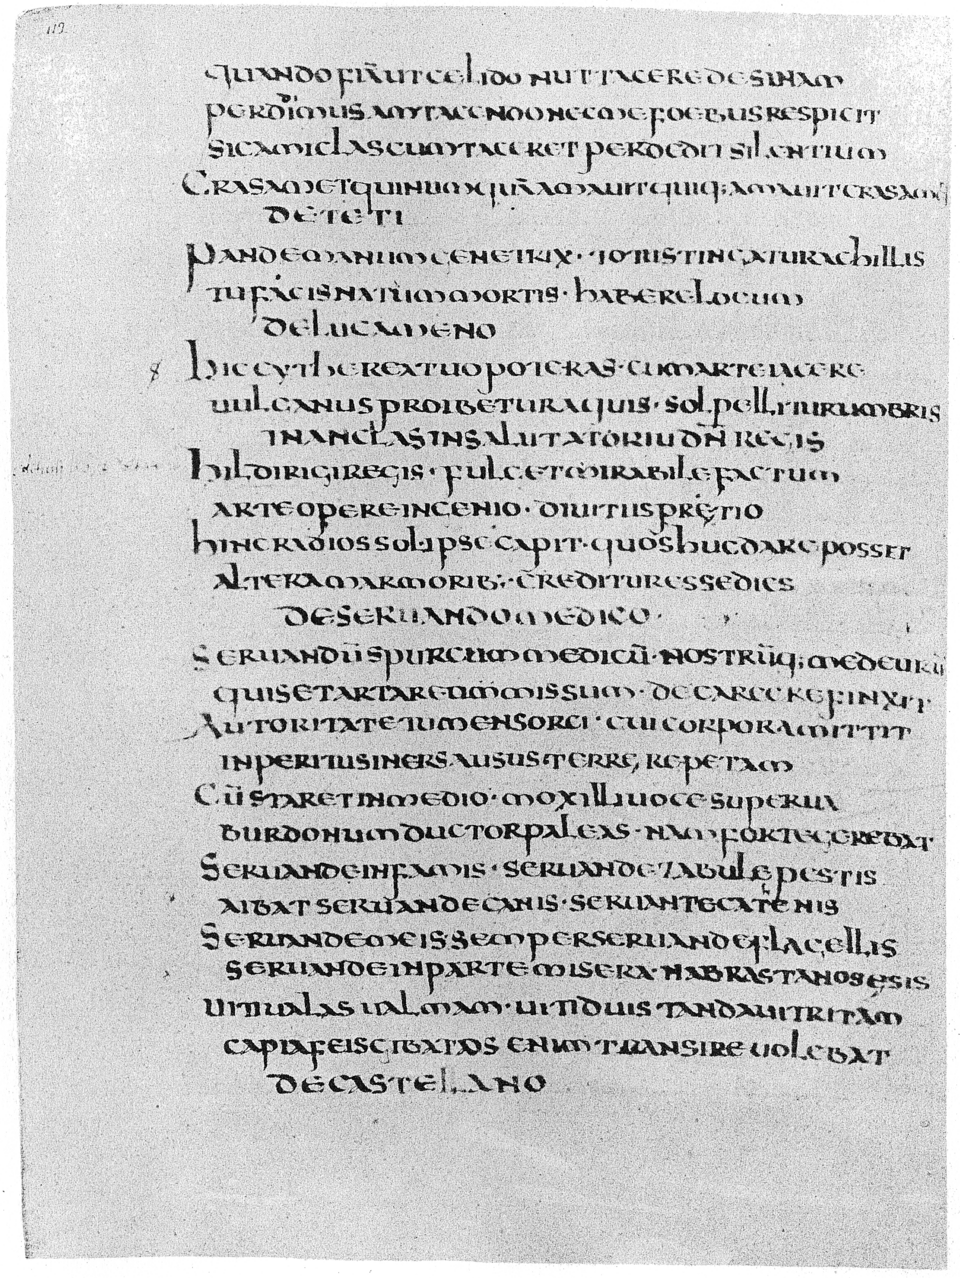 119
QUANDO FIAM UT CELIDON UT TACERE DESINAM
PERDIDI MUSAM TACENDO NEC ME FOEBUS RESPICIT
SIC AMICLAS CUM TACERET PERDEDIT SILENTIUM
CRAS AMET QUI NUMQUĀ AMAVIT QUIQ; AMAVIT CRAS AM
DE TETI
PANDE MANUM GENETRIX · TOTUS TINGATUR ACHILLIS
TU FACIS NATUM MORTIS · HABERE LOCUM
DE LUCAMENO
HIC CYTHEREA TUO POTERAS · CUM MARTE IACERE
UULCANUS PROIBETUR AQUIS · SOL PELLITUR UMBRIS
IN ANCLAS IN SALUTATORIU DN̄ REGIS
HILDIRIGI REGIS · FULGET MIRABILE FACTUM
ARTE OPERE INGENIO · DIUITIIS PRETIO
HINC RADIOS SOL IPSE CAPIT · QUOS HUC DARE POSSET
ALTERA MARMORIB; · CREDITUR ESSE DIES
DE SERUANDO MEDICO ·
SERUANDŪ SPURCUM MEDICŪ · NOSTRŪQ;
QUIS E TARTAREUM MISSUM · DE CARCERE FINXIT
AUTORITATE TUMENS ORCI · CUI CORPORA MITTIT
INPERITUS INERS AUSUS TERRE, REPETAM
CŪ STARET IN MEDIO · MOX ILLI UOCE SUPERUA
BURDONUM DUCTOR PALEAS · NAM FORTE GEREBAT
SERUANDE INFAMIS · SERUANDE ZABULE PESTIS
AIBAT SERUANDE CANIS · SERUANTE CATENIS
SERUANDE MEIS SEMPER SERUANDE FLAGELLIS
SERUANDE IN PARTE MISERA ·
CAPIA TRANSIRE UOLEBAT
DE CASTELLANO